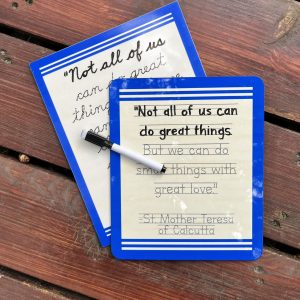 "Not all of us
can do great
things.
"Not all of us can
do great things.
But we can do
small things with
great love."
St. Mother Teresa
of Calcutta